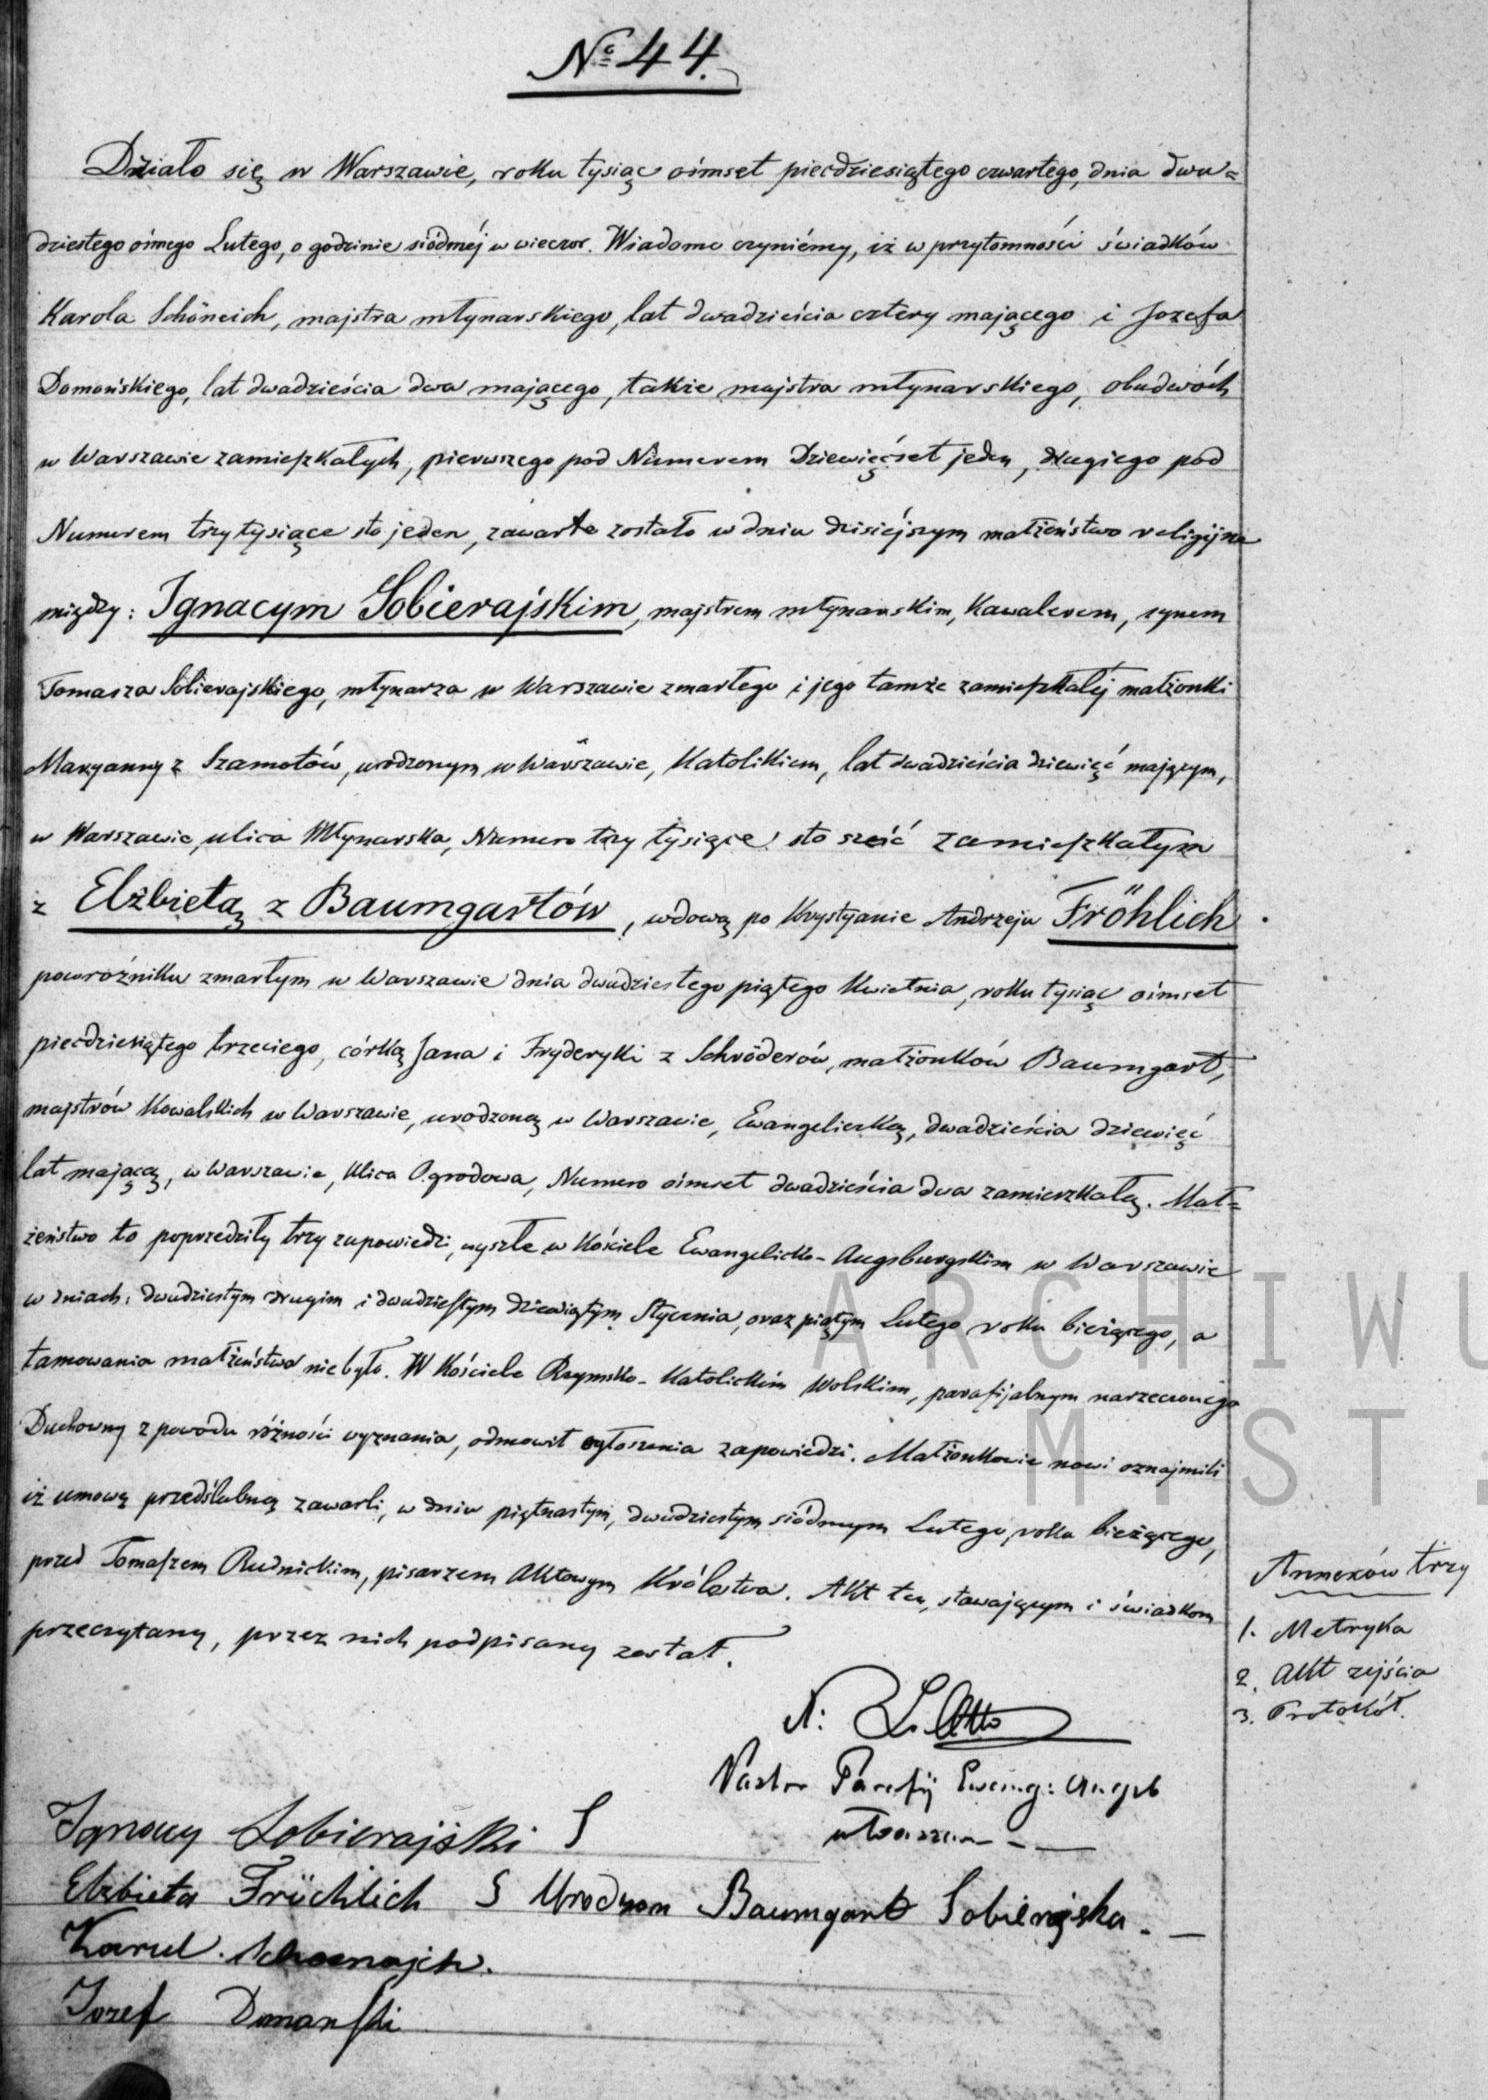 No 44.
Działo się w Warszawie, roku tysiąc ośmset piećdziesiątego czwartego, dnia dwu=
dziestego ósmego Lutego, o godzinie siódméj w wieczor. Wiadomo czyniémy, iż w przytomności świadków
Karola Schöneich, majstra młynarskiego, lat dwadzieścia cztery mającego i Jozefa
Domońskiego, lat dwadzieścia dwa mającego, także majstra młynarskiego, obudwóch
w Warszawie zamieszkałych, pierwszego pod Numerem Dziewięćset jeden, drugiego pod
Numerem trzy tysiące sto jeden, zawarte zostało w dniu dzisiéjszym małżeństwo religijne
między: Ignacym Sobierajskim, majstrem młynarskim, Kawalerem, synem
Tomasza Sobierajskiego, młynarza w Warszawie zmarłego i jego tamże zamieszkałéj małżonki
Maryanny z Szamotów, urodzonym w Warszawie, Katolikiem, lat dwadzieścia dziewięć mającym,
w Warszawie, ulica Młynarska, Numero trzy tysiące sto sześć zamieszkałym
z Elżbietą z Baumgartów, wdową po Krystyanie Andrzeju Fröhlich
powroźniku zmarłym w Warszawie dnia dwudziestego piątego Kwietnia, roku tysiąc ośmset
piećdziesiątego trzeciego, córką Jana i Fryderyki z Schröderów, małżonków Baumgart,
majstrów Kowalskich w Warszawie, urodzoną w Warszawie, Ewangeliczką, dwadzieścia dziewięć
lat mającą, w Warszawie, Ulica Ogrodowa, Numero ośmset dwadzieścia dwa zamieszkałą. Mał=
żeństwo to poprzedziły trzy zapowiedzi, wyszłe w Kościele Ewangelicko-Augsburgskim w Warszawie
w dniach: dwudziestym drugim i dwudziestym dziewiątym Stycznia, oraz piątym Lutego roku bieżącego, a
tamowania małżeństwa nie było. W Kościele Rzymsko-Katolickim Wolskim, parafijalnym narzeczonego
Duchowny z powodu różności wyznania, odmówił ogłoszenia zapowiedzi. Małżonkowie nowi oznajmili
iż umowę przedślubną zawarli, w dniu piętnastym, dwudziestym siódmym Lutego, roku bieżącego,
przed Tomaszem Rudnickim, pisarzem Aktowym Królestwa. Akt ten, stawającym i świadkom
przeczytany, przez nich podpisany został.
Annexów trzy
1. Metryka
2. Akt zejścia
3. Protokół.
L. Otto
Pastor Parafij Ewang: Augsb
Ignacy Sobierajski S
Elzbieta Früchlich S Urodzon Baumgart Sobierajska
Karol Schoenajch.
Jozef Domanski
ARCHIWU
M.ST.